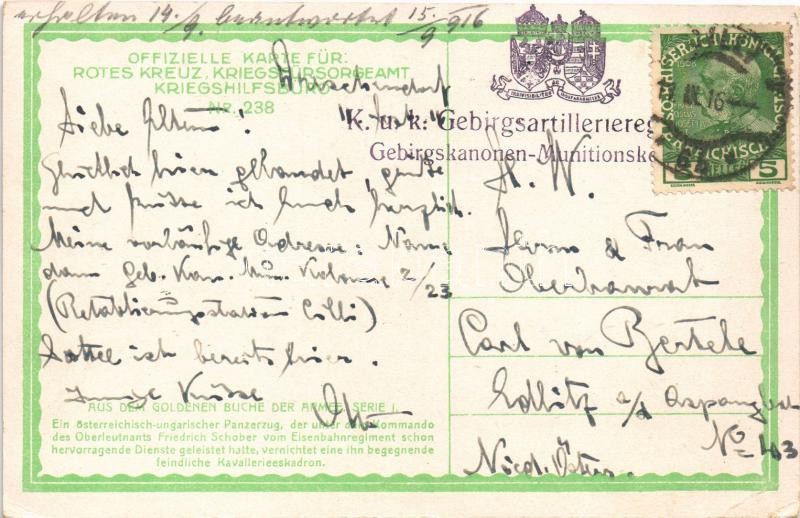 erhalten 14./9. beantwortet 15/9 916
OFFIZIELLE KARTE FÜR:
ROTES KREUZ, KRIEGSFÜRSORGEAMT
KRIEGSHILFSBÜRO
NR. 238
INDIVISIBILITER AC INSEPARABILITER
K. u. k. Gebirgsartilleriereg
Gebirgskanonen-Munitionsko
16
5
Liebe Eltern!
Glücklich hier gelandet, grüße
und küsse ich Euch herzlich.
Meine vorläufige Adresse: Name
dann Geb. Kan. Mun. Kolonne 2/23
(Retablierungsstation Cilli)
Sattel ist bereits hier.
Innige Küsse
Otto
H. W.
Herrn & Frau
Oberbaurat
Carl von Bertele
Edlitz a/d Aspangbahn
No 43
Nied. Österr.
AUS DEM GOLDENEN BUCHE DER ARMEE, SERIE I.
Ein österreichisch-ungarischer Panzerzug, der unter dem Kommando
des Oberleutnants Friedrich Schober vom Eisenbahnregiment schon
hervorragende Dienste geleistet hatte, vernichtet eine ihn begegnende
feindliche Kavallerieeskadron.